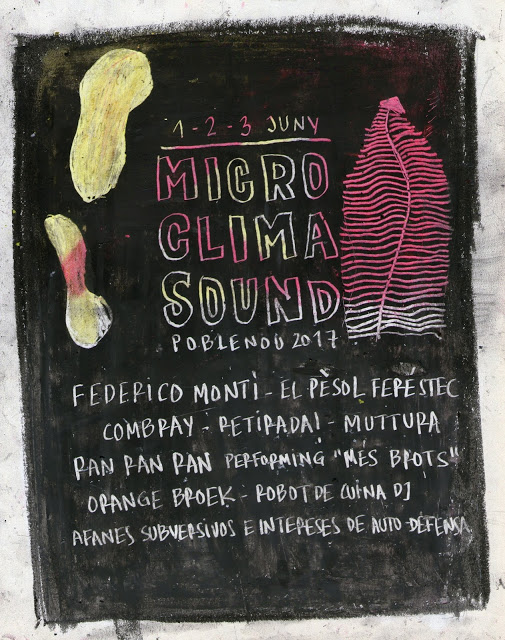 1-2-3 JUNY
MICRO
CLIMA
SOUND
POBLENOU 2017
FEDERICO MONTÌ - EL PÈSOL FERESTEC
COMBRAY - RETIRADA! - MUTTURA
RAN RAN RAN PERFORMING "MÉS BROTS"
ORANGE BROEK - ROBOT DE CUINA DJ
AFANES SUBVERSIVOS E INTERESES DE AUTO-DEFENSA